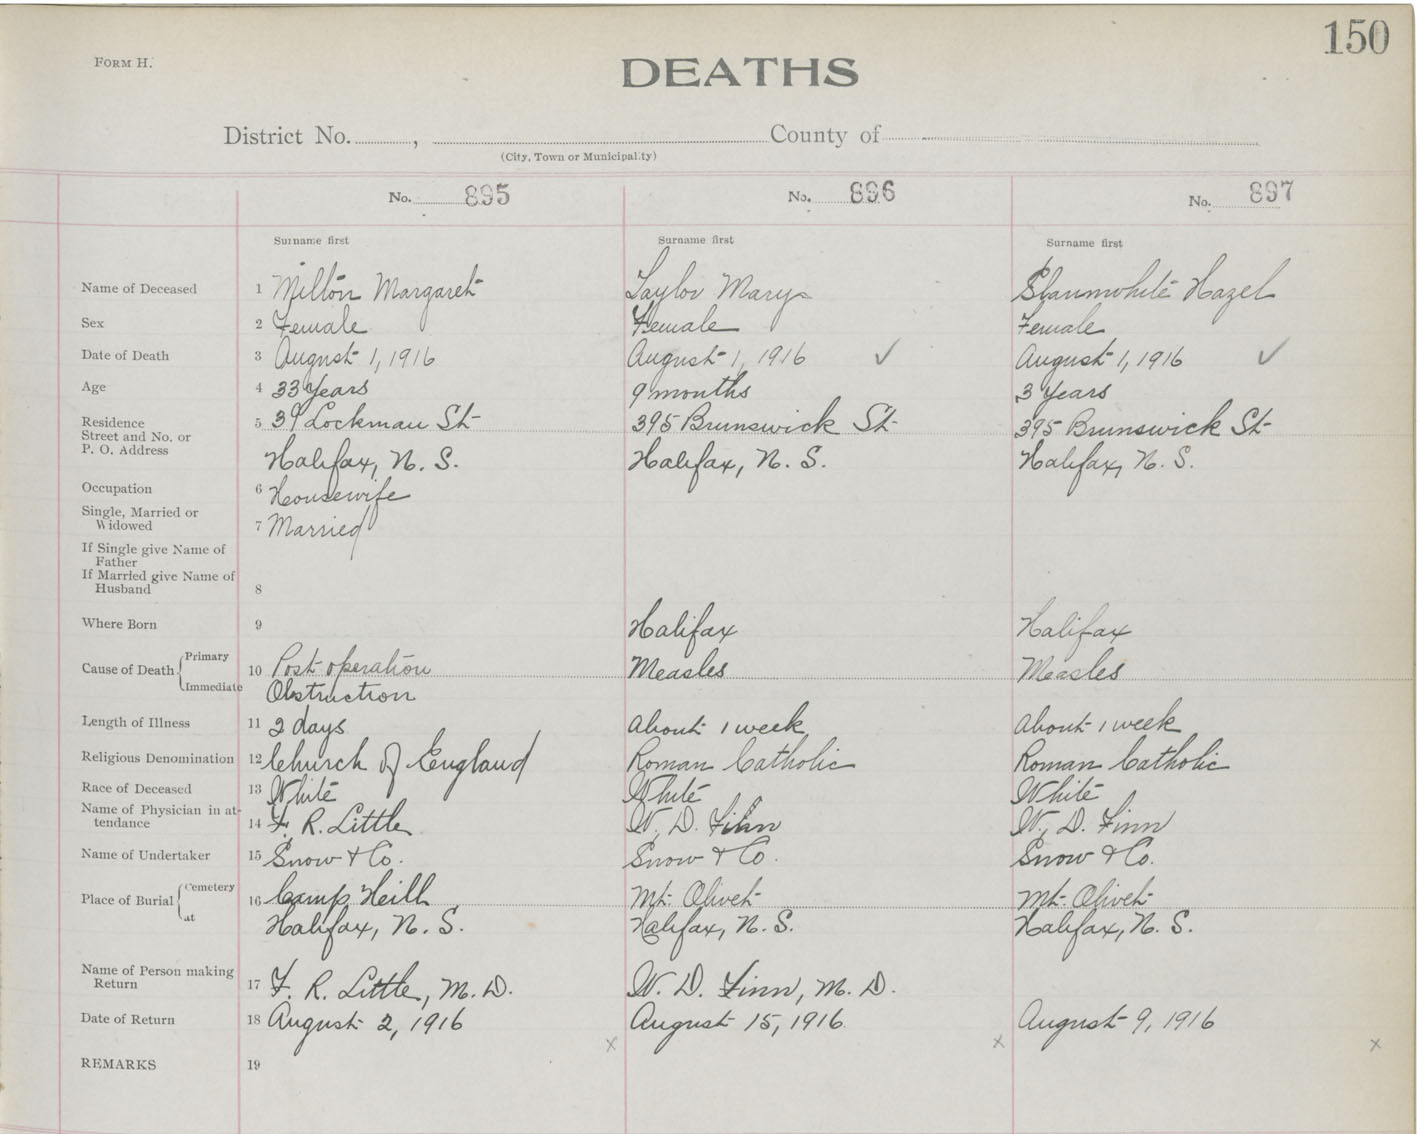 150
FORM H.
DEATHS
District No. , County of
(City, Town or Municipality)
No. 895 No. 896 No. 897
Surname first Surname first Surname first
Name of Deceased 1 Millon Margaret Taylor Mary Slaunwhite Hazel
Sex 2 Female Female Female
Date of Death 3 August 1, 1916 August 1, 1916 ✓ August 1, 1916 ✓
Age 4 33 Years 9 months 3 Years
Residence
Street and No. or
P. O. Address
5 39 Lockman St 395 Brunswick St 395 Brunswick St
Halifax, N. S. Halifax, N. S. Halifax, N. S.
Occupation 6 Housewife
Single, Married or
Widowed 7 Married
If Single give Name of
Father
If Married give Name of
Husband 8
Where Born 9 Halifax Halifax
Cause of Death { Primary 10 Post operation Measles Measles
Immediate Obstruction
Length of Illness 11 2 days About 1 week About 1 week
Religious Denomination 12 Church of England Roman Catholic Roman Catholic
Race of Deceased 13 White White White
Name of Physician in at-
tendance 14 F. R. Little W. D. Finn W. D. Finn
Name of Undertaker 15 Snow & Co. Snow & Co. Snow & Co.
Place of Burial { Cemetery 16 Camp Heill Mt. Olivet Mt. Olivet
at Halifax, N. S. Halifax, N. S. Halifax, N. S.
Name of Person making
Return 17 F. R. Little, M. D. W. D. Finn, M. D.
Date of Return 18 August 2, 1916 August 15, 1916 August 9, 1916
x x x
REMARKS 19